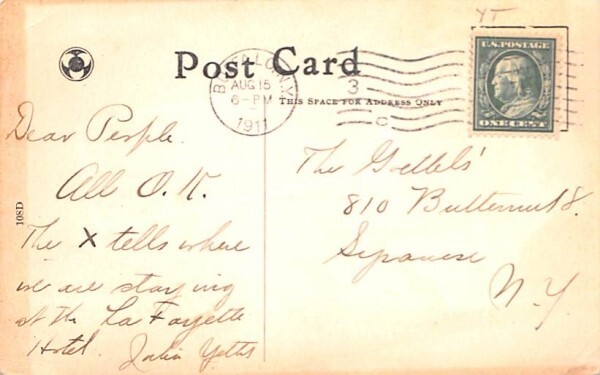 Post Card
U.S. POSTAGE
ONE CENT
BUFFALO, N.Y.
AUG 15
6-PM
1911
3
C
THIS SPACE FOR ADDRESS ONLY
108D
Dear People.
All O.K.
The X tells where
we are staying
at the La Fayette
Hotel.
The
810 Butternut St.
Syracuse
N.Y.